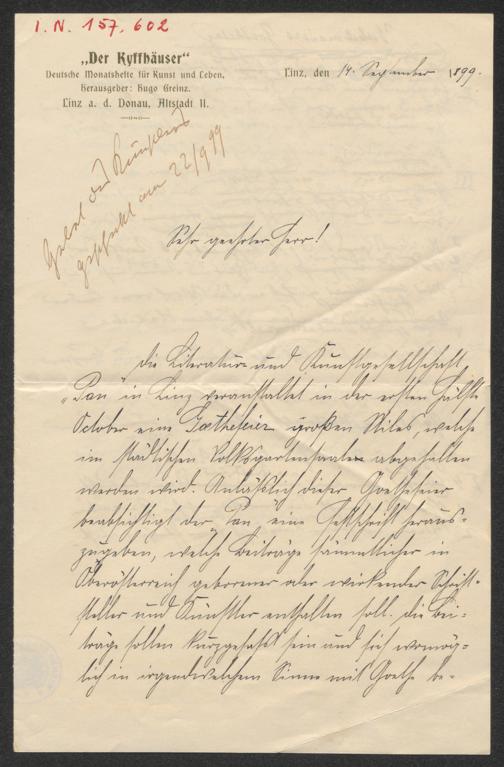 I. N. 157.602
„Der Kyffhäuser"
Deutsche Monatshefte für Kunst und Leben.
Herausgeber: Hugo Greinz.
Linz a. d. Donau, Altstadt 11.
Linz, den 14. September 1899.
geschickt am 22/9 99
Sehr geehrter Herr!
die Literatur- und Kunstgesellschaft
„Pan" in Linz veranstaltet in der ersten Hälfte
October eine Goethefeier großen Stiles, welche
im städtischen Volksgartensaale abgehalten
werden wird. Anlässlich dieser Goethefeier
beabsichtigt der „Pan" eine Festschrift heraus-
zugeben, welche Beiträge sämmtlicher in
Oberösterreich geborener oder wirkender Schrift-
steller und Künstler enthalten soll. die Bei-
träge sollen kurzgefasst sein und sich womög-
lich in irgendwelchem Sinne mit Goethe be-